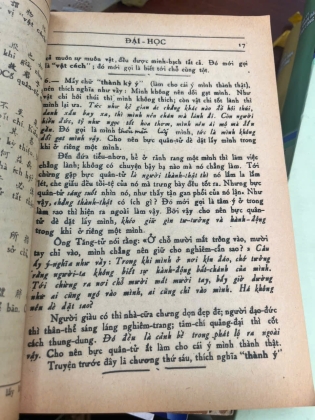 ĐẠI-HỌC
17
cố muốn sự muôn vật, đều được minh-bạch tất cả. Đó mới gọi
là "vật cách"; đó mới gọi là biết tới chỗ cùng tột.
6. — Mấy chữ "thành kỳ ý" (làm cho cái ý mình thành thật),
nên thích nghĩa như vầy: Mình không nên dối gạt mình. Như
vật chi hôi thúi thì mình không thích; còn vật chi tốt lành thì
mình lại ưa. Tức như kẻ gian ác chẳng khác nào đồ hôi thúi,
danh xấu bay xa, thì mình nên chán mà lánh đi. Còn người
hiền đức, tỷ như ngọc tốt hoa thơm, mình nên ái mộ mà lần
gần. Đó gọi là mình mình, tức là mình không
dối gạt mình vậy. Cho nên bực quân-tử dè dặt lấy mình trong
khi ở riêng một mình.
Đến đứa tiểu-nhơn, hễ ở rảnh rang một mình thì làm việc
chẳng lành; không có chuyện bậy bạ nào mà nó chẳng làm. Tới
chừng gặp bực quân-tử là người thành-thật thì nó lấm la lấm
lét, che giấu đều tồi-tệ của nó mà trưng bày đều tốt ra. Nhưng bực
quân-tử ngay suốt nhìn nó, như thấy tận gan phổi của nó lận. Như
vậy, chẳng thành-thật có ích gì? Đó mới gọi là tâm ý ở trong
làm sao thì hiện ra ngoài làm vậy. Bởi vậy cho nên bực quân-
tử dè dặt lấy mình, khéo giữ gìn tư-tưởng và hành-động
trong khi ở riêng một mình.
Ông Tăng-tử nói rằng: «Ở chỗ mười mắt trông vào, mười
tay chỉ vào, mình chẳng nên giữ cho nghiêm-cẩn sao? » Câu
ấy ý-nghĩa như vầy: Trong khi mình ở nơi kín đáo, chớ tưởng
rằng người-ta không biết sự hành-động bất-chánh của mình.
Tới chừng ra nơi chỗ mười mắt mười tay, bấy giờ dường
như ai cũng ngó vào mình, ai cũng chỉ vào mình. Há không
nên dè dặt sao?
Người giàu có thì nhà-cửa chưng dọn đẹp đẽ; người đạo-đức
thì thân-thể sáng láng nghiêm-trang; tâm-chí quảng-đại thì cốt
cách thung-dung. Đó đều là cảnh bề trong phát lộ ra ngoài
vậy. Cho nên bực quân-tử ắt làm cho cái ý mình thành thật.
Truyện trước đây là chương thứ sáu, thích nghĩa "thành ý"